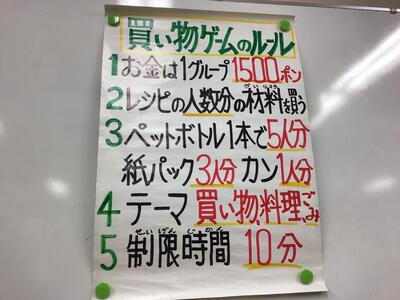 買い物ゲームのルール
1お金は1グループ1500ポン
2レシピの人数分の材料を買う
3ペットボトル1本で5人分
紙パック3人分 カン1人分
4 テーマ 買い物、料理、ごみ
せいげん じかん
5 制限時間 10分